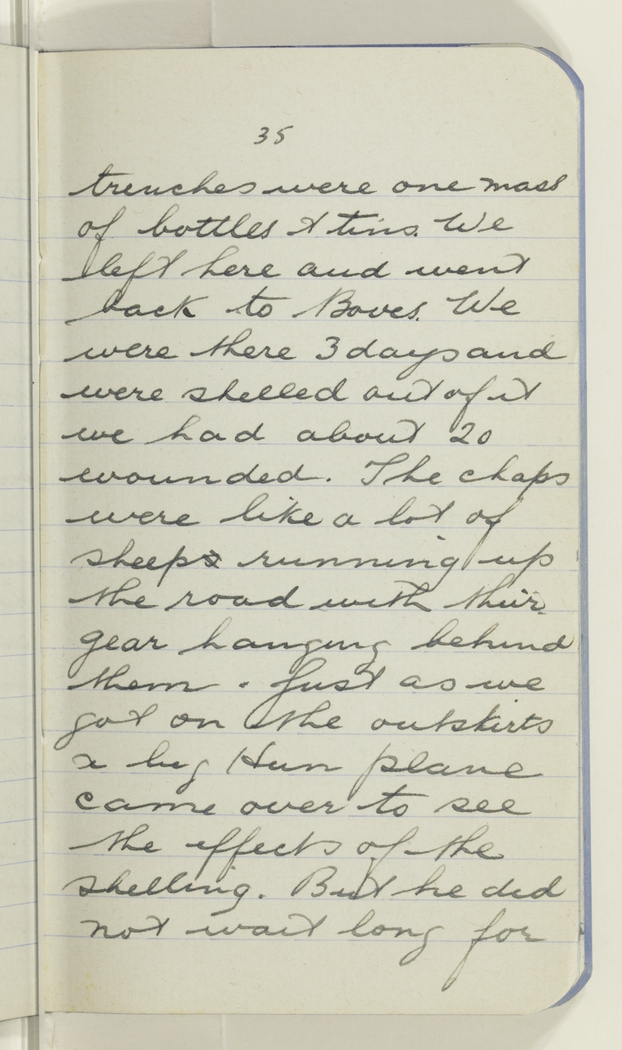 35
trenches were one mass
of bottles & tins. We
left here and went
back to Boves. We
were there 3 days and
were shelled out of it
we had about 20
wounded. The chaps
were like a lot of
sheeps running up
the road with their
gear hanging behind
them. Just as we
got on the outskirts
a big Hun plane
came over to see
the effects of the
shelling. But he did
not wait long for